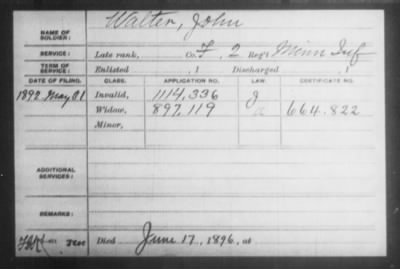 Walter, John
NAME OF SOLDIER:
SERVICE: Late rank, Co. F, 2 Reg't Minn Inf
TERM OF SERVICE: Enlisted , 1 Discharged , 1
DATE OF FILING. CLASS. APPLICATION NO. LAW CERTIFICATE NO.
1892 May Invalid, 1114,336 g
Widow, 897,119 a 664.822
Minor,
ADDITIONAL SERVICES:
REMARKS:
Died June 17, 1896, at